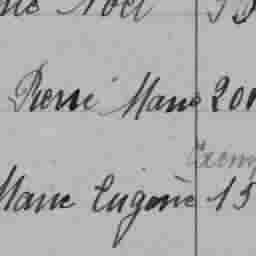 Noël
Pierre Marie 20
Exemp
Marie Eugène 15